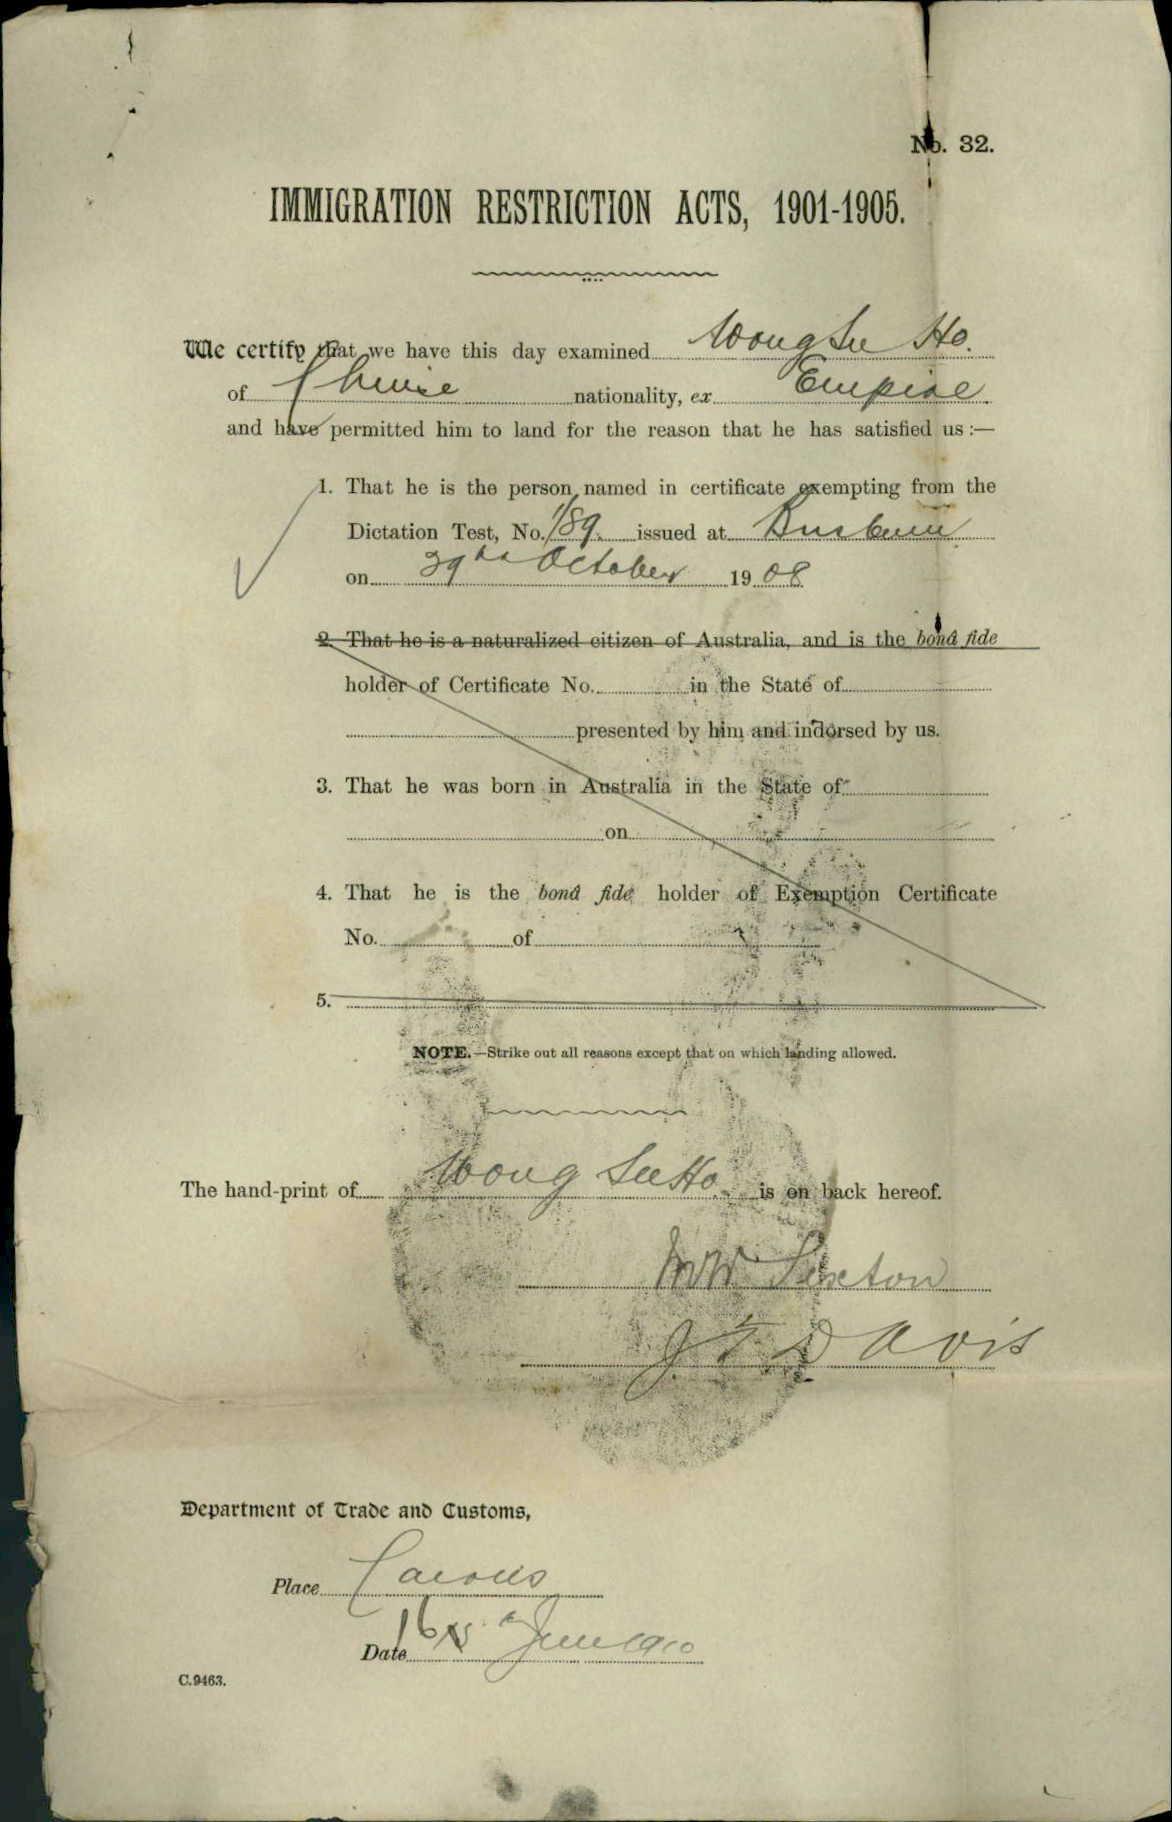 No. 32.
IMMIGRATION RESTRICTION ACTS, 1901-1905.
We certify that we have this day examined Wong See Ho.
of Chinese nationality, ex Empire
and have permitted him to land for the reason that he has satisfied us :—
1. That he is the person named in certificate exempting from the
Dictation Test, No. 189. issued at Brisbane
on 29th October 1908
2. That he is a naturalized citizen of Australia, and is the bonâ fide
holder of Certificate No. in the State of
presented by him and indorsed by us.
3. That he was born in Australia in the State of
on
4. That he is the bonâ fide holder of Exemption Certificate
No. of
5.
NOTE.—Strike out all reasons except that on which landing allowed.
The hand-print of Wong See Ho. is on back hereof.
Sexton
Davis
Department of Trade and Customs,
Place Cairns
Date 16th June 1910
C.9463.